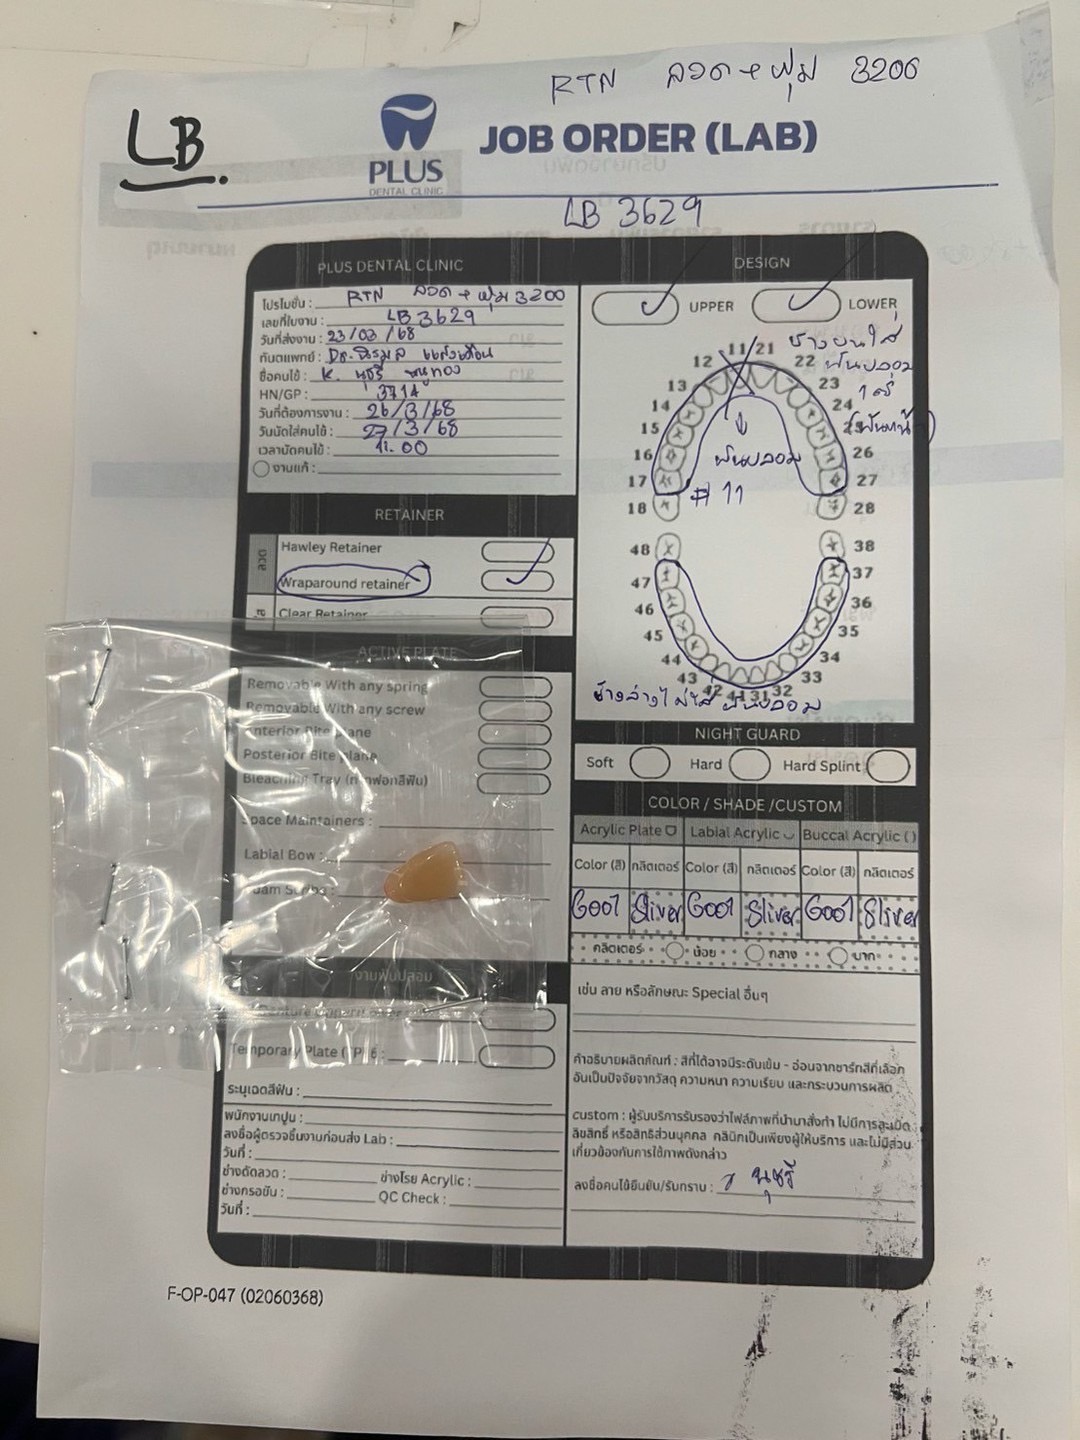 RTN ลวด + ฟุ่ม 3200
LB
PLUS
DENTAL CLINIC
JOB ORDER (LAB)
LB 3629
PLUS DENTAL CLINIC
โปรโมชั่น : RTN ลวด + ฟุ่ม 3200
เลขที่ใบงาน : LB 3629
วันที่ส่งงาน : 23/03/68
ทันตแพทย์ : Dr.
ชื่อคนไข้ : K. นุชรี หนูทอง
HN/GP : 3714
วันที่ต้องการงาน : 26/3/68
วันนัดใส่คนไข้ : 27/3/68
เวลานัดคนไข้ : 11.00
งานแก้ :
RETAINER
ลวด
Hawley Retainer
Wraparound retainer
ใส
Clear Retainer
ACTIVE PLATE
Removable With any spring
Removable With any screw
Anterior Bite plane
Posterior Bite plane
Bleaching Tray (ถาดฟอกสีฟัน)
Space Maintainers :
Labial Bow :
งานฟันปลอม
Temporary Plate (TP) :
ระบุเฉดสีฟัน :
พนักงานเทปูน :
ลงชื่อผู้ตรวจชิ้นงานก่อนส่ง Lab :
วันที่ :
ช่างดัดลวด : ช่างโรย Acrylic :
ช่างกรอขัด : QC Check :
วันที่ :
DESIGN
UPPER LOWER
ข้างบนใส่
ฟันปลอม
1 ซี่
(ฟันหน้า)
11 21
12 22
13 23
14 24
15 25
16 26
17 27
18 28
ฟันปลอม
# 11
48 38
47 37
46 36
45 35
44 34
43 33
42 41 31 32
ข้างล่างไม่ใส่ฟันปลอม
NIGHT GUARD
Soft Hard Hard Splint
COLOR / SHADE /CUSTOM
Acrylic Plate Labial Acrylic Buccal Acrylic ( )
Color (สี) กลิตเตอร์ Color (สี) กลิตเตอร์ Color (สี) กลิตเตอร์
G001 Sliver G001 Sliver G001 Sliver
กลิตเตอร์ น้อย กลาง มาก
เช่น ลาย หรือลักษณะ Special อื่นๆ
คำอธิบายผลิตภัณฑ์ : สีที่ได้อาจมีระดับเข้ม - อ่อนจากชาร์ทสีที่เลือก
อันเป็นปัจจัยจากวัสดุ ความหนา ความเรียบ และกระบวนการผลิต
custom : ผู้รับบริการรับรองว่าไฟล์ภาพที่นำมาสั่งทำ ไม่มีการละเมิด
ลิขสิทธิ์ หรือสิทธิส่วนบุคคล คลินิกเป็นเพียงผู้ให้บริการ และไม่มีส่วน
เกี่ยวข้องกับการใช้ภาพดังกล่าว
ลงชื่อคนไข้ยืนยัน/รับทราบ : นุชรี
F-OP-047 (02060368)